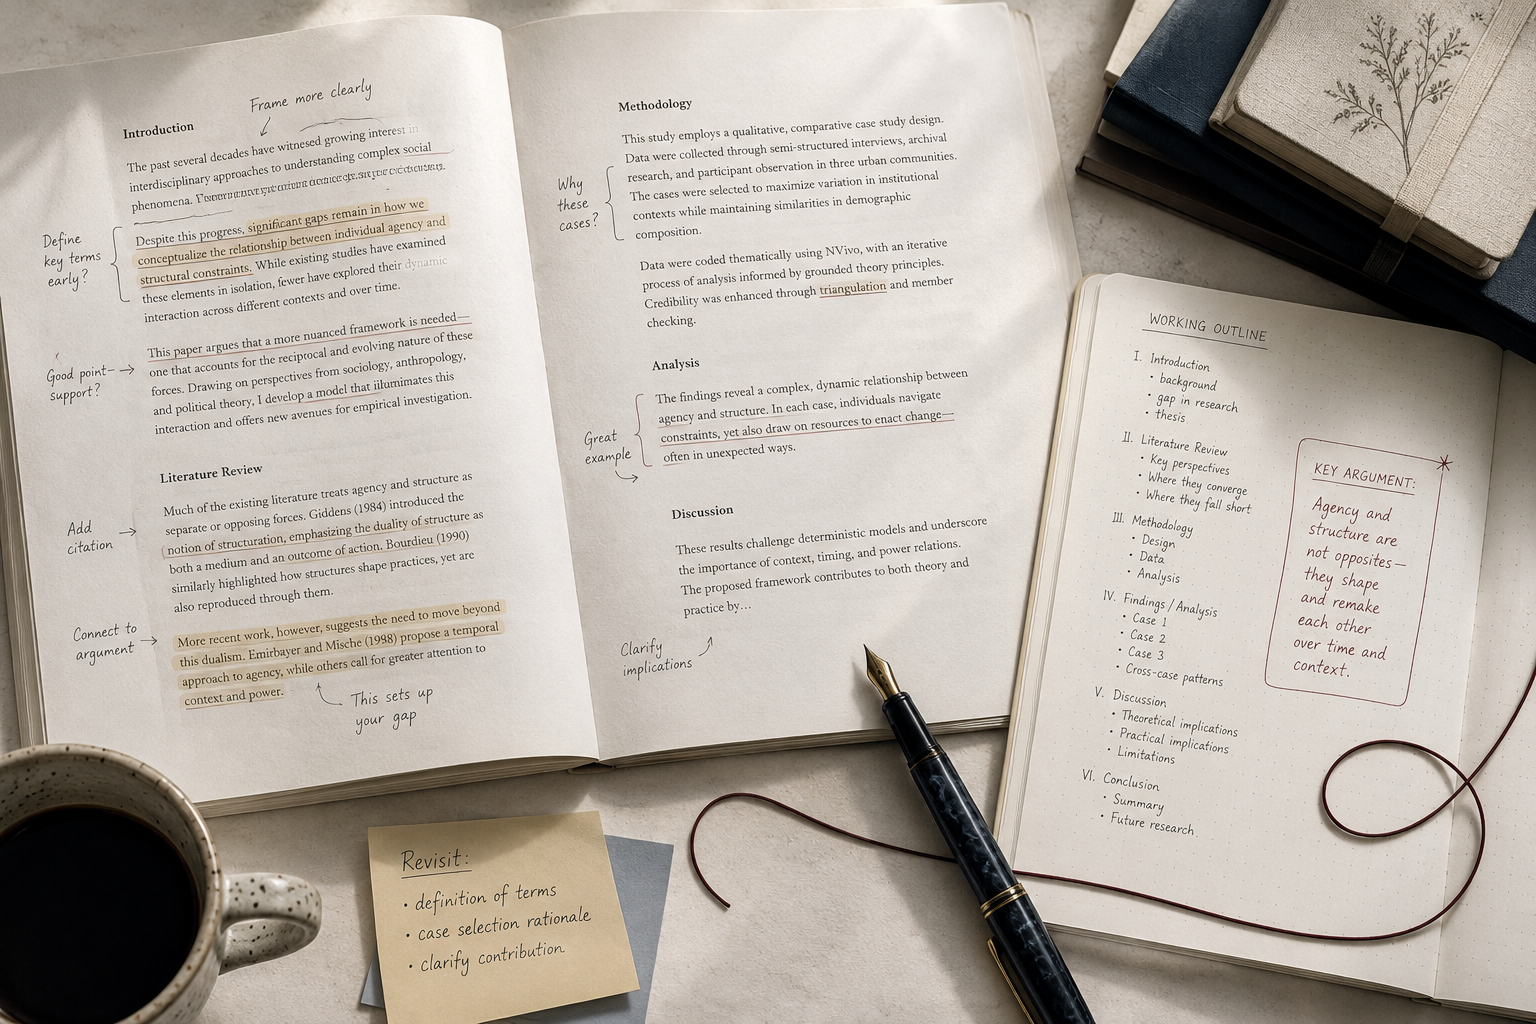 Frame more clearly
Introduction
The past several decades have witnesed growing interest in
interdisciplinary approaches to understanding complex social
phenomena.
Define
key terms
early?
Despite this progress, significant gaps remain in how we
conceptualize the relationship between individual agency and
structural constraints. While existing studies have examined
these elements in isolation, fewer have explored their dynamic
interaction across different contexts and over time.
Good point—
support?
This paper argues that a more nuanced framework is needed—
one that accounts for the reciprocal and evolving nature of these
forces. Drawing on perspectives from sociology, anthropology,
and political theory, I develop a model that illumimates this
interaction and offers new avenues for empirical investigation.
Literature Review
Add
citation
Much of the existing literature treats agency and structure as
separate or opposing forces. Giddens (1984) introduced the
notion of structuration, emphasizing the duality of structure as
both a medium and an outcome of action. Bourdieu (1990)
similarly highlighted how structures shape practices, yet are
also reproduced through them.
Connect to
argument
More recent work, however, suggests the need to move beyond
this dualism. Emirbayer and Mische (1998) propose a temporal
approach to agency, while others call for greater attention to
context and power.
This sets up
your gap
Methodology
Why
these
cases?
This study employs a qualitative, comparative case study design.
Data were collected through semi-structured interviews, archival
research, and participant observation in three urban communities.
The cases were selected to maximize variation in institutional
contexts while maintaining similarities in demographic
composition.
Data were coded thematically using NVivo, with an iterative
process of analysis informed by grounded theory principles.
Credibility was enhanced through triangulation and member
checking.
Analysis
Great
example
The findings reveal a complex, dynamic relationship between
agency and structure. In each case, individuals navigate
constraints, yet also draw on resources to enact change—
often in unexpected ways.
Discussion
These results challenge deterministic models and underscore
the importance of context, timing, and power relations.
The proposed framework contributes to both theory and
practice by...
Clarify
implications
WORKING OUTLINE
I. Introduction
• background
• gap in research
• thesis
II. Literature Review
• Key perspectives
• Where they converge
• Where they fall short
III. Methodology
• Design
• Data
• Analysis
IV. Findings / Analysis
• Case 1
• Case 2
• Case 3
• Cross-case patterns
V. Discussion
• Theoretical implications
• Practical implications
• Limitations
VI. Conclusion
• Summary
• Future research
KEY ARGUMENT:
Agency and
structure are
not opposites—
they shape
and remake
each other
over time and
context.
Revisit:
• definition of terms
• case selection rationale
• clarify contribution